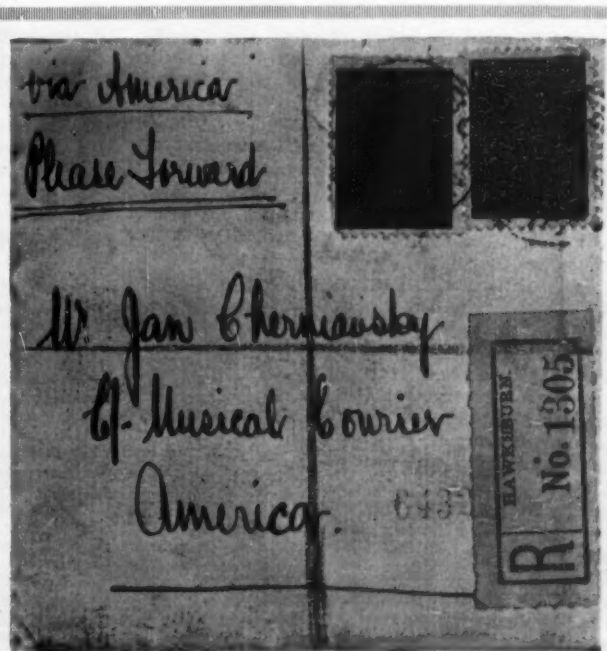 via America
Please Forward
Mr. Jan Cherniavsky
C/- Musical Courier
America.
643
R
HAWKSBURN.
No. 1305